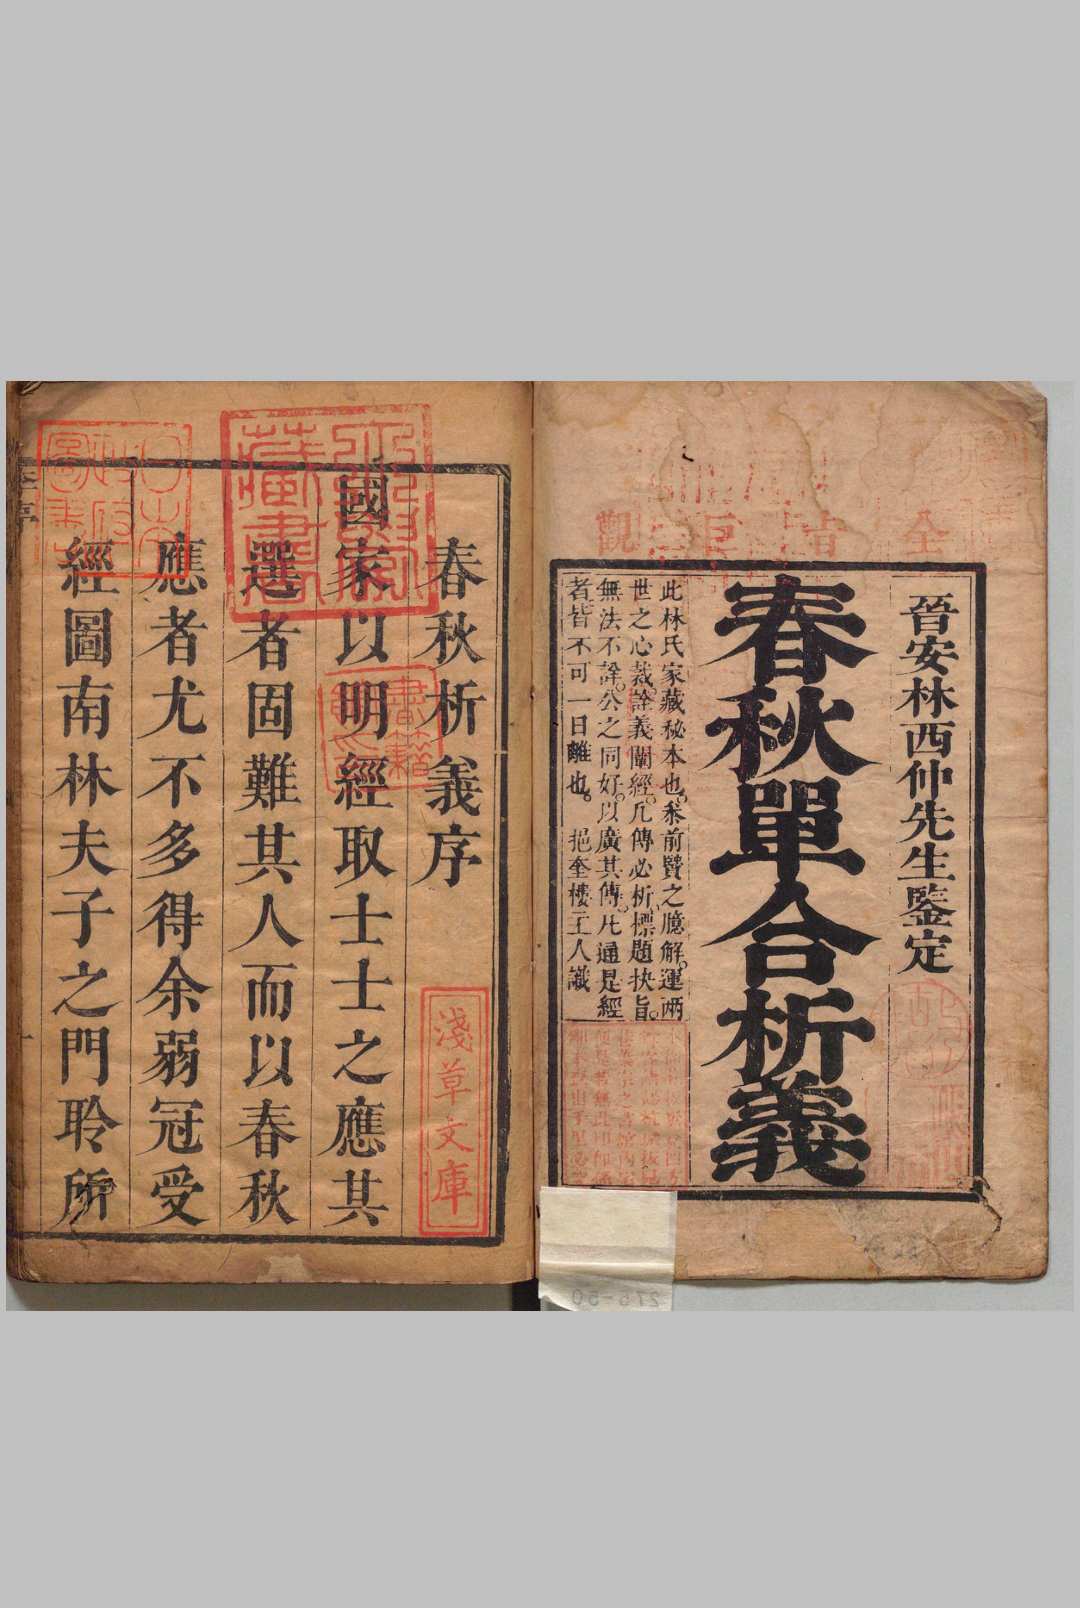 全
觀
晉安林西仲先生鑒定
春秋單合析義
此林氏家藏秘本也。釆前賢之臆解。運兩
世之心裁。詮義闡經。凡傳必析。標題抉旨。
無法不詮。公之同好。以廣其傳。凡通是經
者皆不可一日離也。 挹奎樓主人識
春秋析義序
國家以明經取士士之應其
選者固難其人而以春秋
應者尤不多得余弱冠受
經圖南林夫子之門聆所
淺草文庫
書籍
藏書
276-50